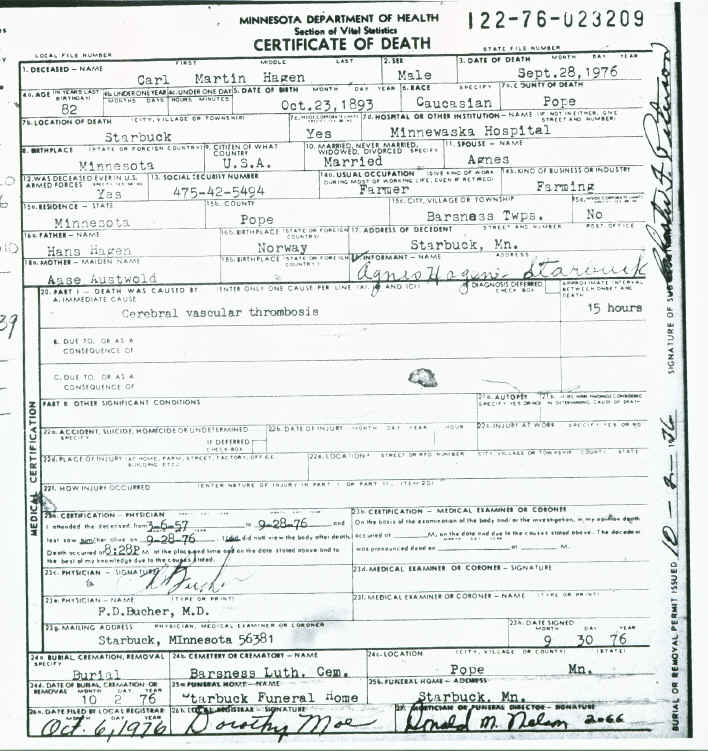 MINNESOTA DEPARTMENT OF HEALTH
Section of Vital Statistics
CERTIFICATE OF DEATH
122-76-023209
LOCAL FILE NUMBER
STATE FILE NUMBER
1. DECEASED - NAME FIRST MIDDLE LAST 2. SEX 3. DATE OF DEATH MONTH DAY YEAR
Carl Martin Hagen Male Sept.28,1976
4a. AGE (IN YEARS LAST BIRTHDAY) 4b. UNDER ONE YEAR 4c. UNDER ONE DAY 5. DATE OF BIRTH MONTH DAY YEAR 6. RACE SPECIFY 7a. COUNTY OF DEATH
MONTHS DAYS HOURS MINUTES
82 Oct.23,1893 Caucasian Pope
7b. LOCATION OF DEATH (CITY, VILLAGE OR TOWNSHIP) 7d. HOSPITAL OR OTHER INSTITUTION - NAME (IF NOT IN EITHER, GIVE STREET AND NUMBER)
Starbuck Yes Minnewaska Hospital
8. BIRTHPLACE (STATE OR FOREIGN COUNTRY) 9. CITIZEN OF WHAT COUNTRY 10. MARRIED, NEVER MARRIED, WIDOWED, DIVORCED SPECIFY 11. SPOUSE - NAME
Minnesota U.S.A. Married Agnes
12. WAS DECEASED EVER IN U.S. ARMED FORCES 13. SOCIAL SECURITY NUMBER 14a. USUAL OCCUPATION (GIVE KIND OF WORK DURING MOST OF WORKING LIFE, EVEN IF RETIRED) 14b. KIND OF BUSINESS OR INDUSTRY
Yes 475-42-5494 Farmer Farming
15a. RESIDENCE - STATE 15b. COUNTY 15c. CITY, VILLAGE OR TOWNSHIP
Minnesota Pope Barsness Twps. No
16a. FATHER - NAME 16b. BIRTHPLACE (STATE OR FOREIGN COUNTRY) 17. ADDRESS OF DECEDENT STREET AND NUMBER POST OFFICE
Hans Hagen Norway Starbuck, Mn.
18a. MOTHER - MAIDEN NAME 18b. BIRTHPLACE (STATE OR FOREIGN COUNTRY) INFORMANT - NAME ADDRESS
Aase Austwold Agnes Hagen Starbuck
20. PART I - DEATH WAS CAUSED BY (ENTER ONLY ONE CAUSE PER LINE DIAGNOSIS DEFERRED CHECK BOX APPROXIMATE INTERVAL BETWEEN ONSET AND DEATH
A. IMMEDIATE CAUSE
Cerebral vascular thrombosis 15 hours
B. DUE TO, OR AS A
CONSEQUENCE OF
C. DUE TO, OR AS A
CONSEQUENCE OF
PART II OTHER SIGNIFICANT CONDITIONS 21a. AUTOPSY
22a. ACCIDENT, SUICIDE, HOMICIDE OR UNDETERMINED SPECIFY 22b. DATE OF INJURY MONTH DAY YEAR HOUR 22c. INJURY AT WORK SPECIFY YES OR NO
IF DEFERRED CHECK BOX
22d. PLACE OF INJURY (AT HOME, FARM, STREET, FACTORY, OFFICE BUILDING ETC.) 22e. LOCATION STREET OR RFD NUMBER CITY, VILLAGE OR TOWNSHIP COUNTY STATE
22f. HOW INJURY OCCURRED (ENTER NATURE OF INJURY IN PART I OR PART II, ITEM 20)
MEDICAL CERTIFICATION
23a. CERTIFICATION - PHYSICIAN 23b. CERTIFICATION - MEDICAL EXAMINER OR CORONER
I attended the deceased from 3-6-57 to 9-28-76 and
last saw him/her alive on 9-28-76 did not view the body after death.
Death occurred at 8:28P M. at the place and time and on the date stated above and to
the best of my knowledge due to the causes stated.
On the basis of the examination of the body and/or the investigation, in my opinion death
occurred at M, on the date and due to the causes stated above. The decedent
was pronounced dead on at M.
23c. PHYSICIAN - SIGNATURE 23d. MEDICAL EXAMINER OR CORONER - SIGNATURE
Bucher
23e. PHYSICIAN - NAME (TYPE OR PRINT) 23f. MEDICAL EXAMINER OR CORONER - NAME (TYPE OR PRINT)
F.D.Bucher, M.D.
23g. MAILING ADDRESS PHYSICIAN, MEDICAL EXAMINER OR CORONER 23h. DATE SIGNED MONTH DAY YEAR
Starbuck, MInnesota 56381 9 30 76
24a. BURIAL, CREMATION, REMOVAL SPECIFY 24b. CEMETERY OR CREMATORY - NAME 24c. LOCATION (CITY, VILLAGE OR COUNTY) (STATE)
Burial Barsness Luth. Cem. Pope Mn.
24d. DATE OF BURIAL, CREMATION OR REMOVAL MONTH DAY YEAR 25a. FUNERAL HOME - NAME 25b. FUNERAL HOME - ADDRESS
10 2 76 tarbuck Funeral Home Starbuck, Mn.
26a. DATE FILED BY LOCAL REGISTRAR 26b. LOCAL REGISTRAR - SIGNATURE 27. MORTICIAN OR FUNERAL DIRECTOR - SIGNATURE
Oct. 6, 1976 Dorothy Moe Donald M. Nelson 2066
BURIAL OR REMOVAL PERMIT ISSUED 10-2-76 SIGNATURE OF SUB